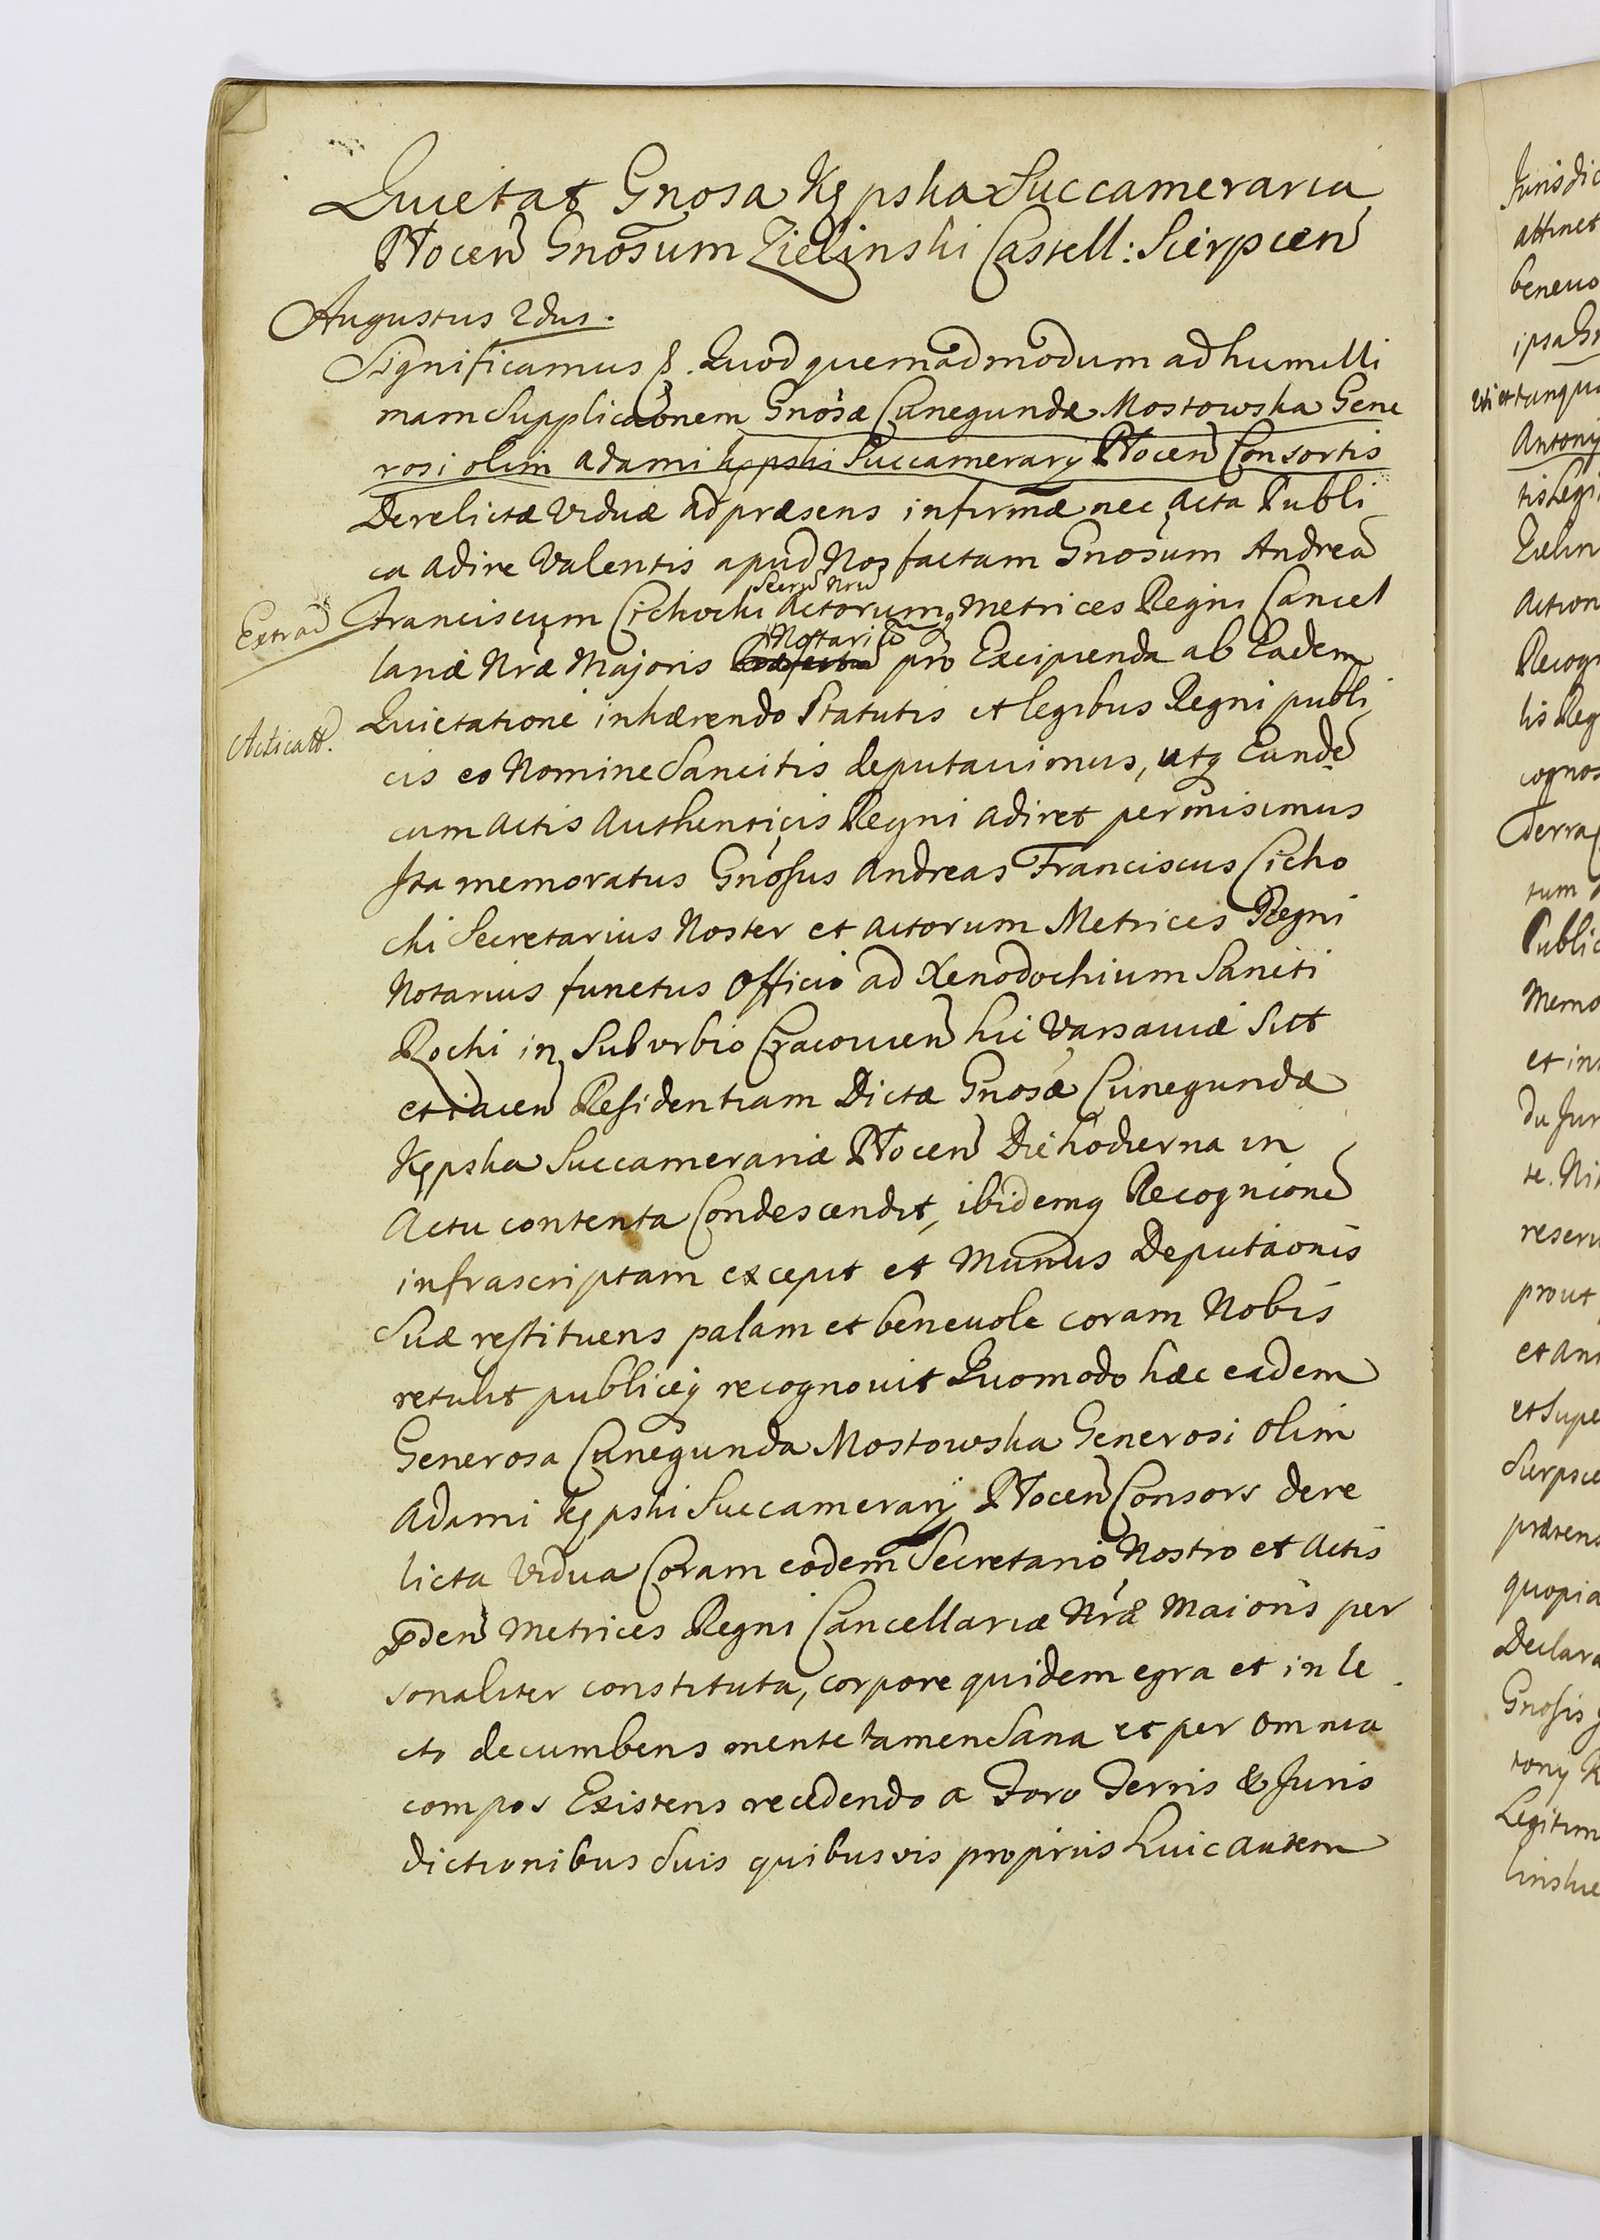 Quietat Gnosa Kępska Succameraria
Plocen Gnosum Zielinski Castell: Sierpcen
Augustus 2dus.
Significamus &. Quod quemadmodum ad humilli
mam Supplicaonem Gnosæ Cunegundæ Mostowska Gene
rosi olim Adami Kępski Succamerarij Plocen Consortis
Derelictæ Viduæ ad præsens infirmæ nec Acta Publi
ca adire Valentis apud Nos factam Gnosum Andrea
Secriu Nru
Extrad Franciscum Cichocki Actorumq Metrices Regni Cancel
Nottariu
lariæ Nræ Majoris pro Excipienda ab Eadem
Quietatione inhærendo Statutis et legibus Regni publi
Acticatt.
cis eo Nomine Sancitis deputavimus, utq Eunde
cum actis Authenticis Regni adiret permisimus
Ita memoratus Gnosus Andreas Franciscus Cicho
cki Secretarius Noster et Actorum Metrices Regni
Notarius functus Officio ad Xenodochium Sancti
Rochi in Suburbio Cracovien hic Varsaviæ Sitt
et iacen Residentiam Dictæ Gnosæ Cunegundæ
Kępska Succamerariæ Plocen Die hodierna in
Actu contenta Condescendit, ibidemq Recognione
infrascriptam excepit et Munus Deputaonis
Suæ restituens palam et benevole coram Nobis
retulit publiceq recognovit Quomodo hæc eadem
Generosa Cunegunda Mostowska Generosi olim
Adami Kępski Succamerarij Plocen Consors dere
licta Vidua Coram eodem Secretario Nostro et Actis
Pnden Metrices Regni Cancellariæ Nræ Maioris per
sonaliter constituta, corpore quidem egra et in le
cto decumbens mente tamen Sana et per omnia
compos Existens recedendo a Foro Terris & Juris
dictionibus Suis quibusvis proprijs huic autem
Jurisdic
attinet
benevo
ipsa Gn
Antonij
tis Legi
Zielin
Action
Recogn
lis Reg
cognos
terra
tum
Public
Memo
et in
du Jur
te. Ni
reserv
prout
et An
et Supe
Sierpce
præsens
quopia
Declara
Gnosis
tonij K
Legitim
linskie